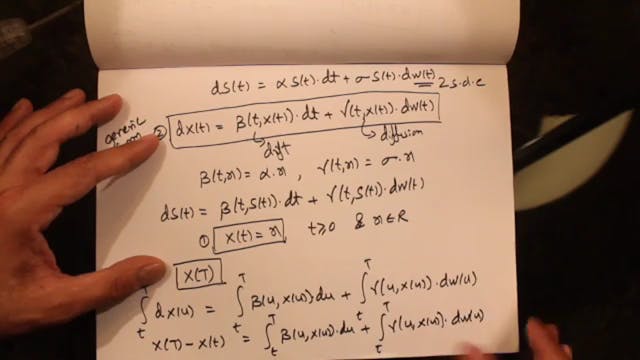 dS(t) = α S(t)·dt + σ S(t)·dW(t) 2 s.d.e
generic
② dX(t) = β(t,X(t))·dt + γ(t,X(t))·dW(t)
drift diffusion
β(t,x) = α·x , γ(t,x) = σ·x
dS(t) = β(t,S(t))·dt + γ(t,S(t))·dW(t)
① X(t) = x t≥0 & x∈R
X(T)
∫_t^T dX(u) = ∫_t^T β(u,X(u))du + ∫_t^T γ(u,X(u))·dW(u)
X(T)-X(t) = ∫_t^T β(u,X(u))·du + ∫_t^T γ(u,X(u))·dW(u)